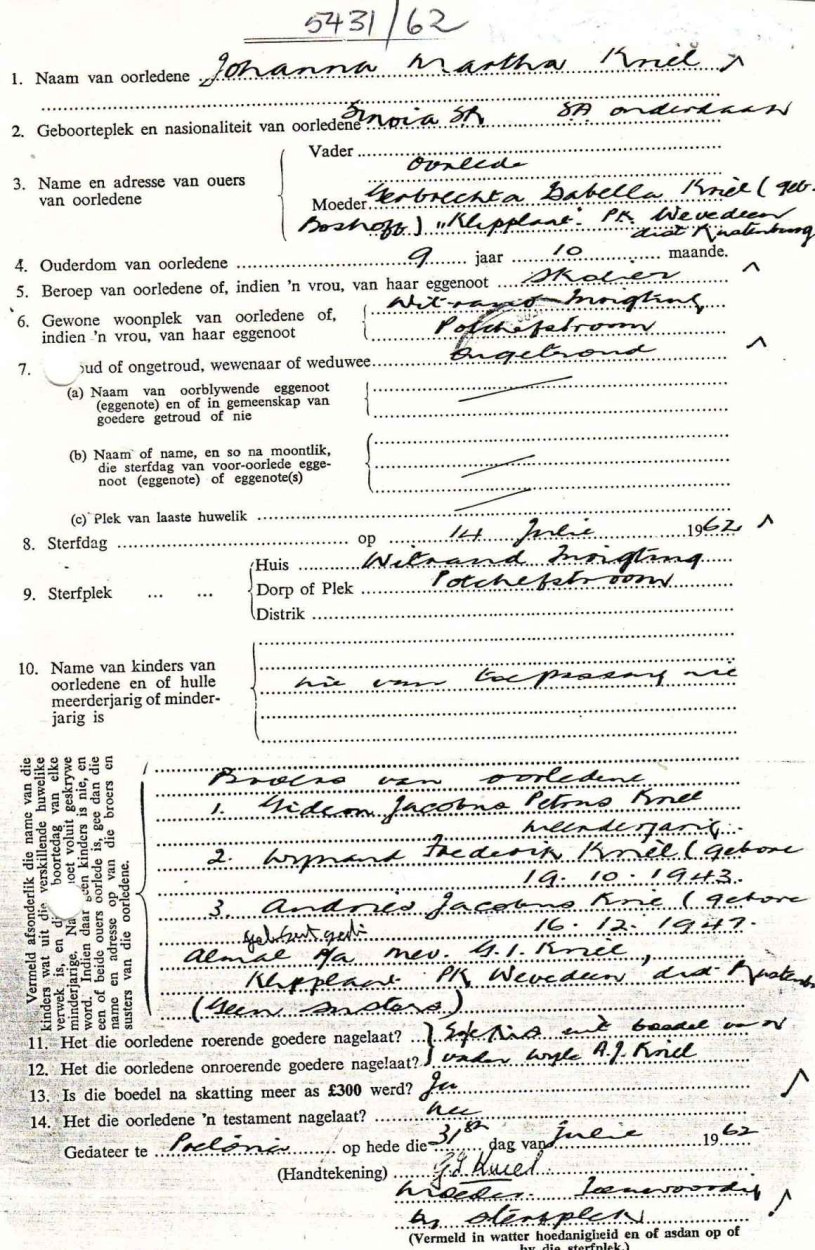 5431/62
1. Naam van oorledene Johanna Martha Kriel
2. Geboorteplek en nasionaliteit van oorledene Sinoia SR SA onderdaan
3. Name en adresse van ouers van oorledene
Vader oorlede
Moeder Gerbrechta Isabella Kriel (geb.
Boshoff) "Klipplaat" PK Wevedeen
dist Rustenburg
4. Ouderdom van oorledene 9 jaar 10 maande.
5. Beroep van oorledene of, indien 'n vrou, van haar eggenoot Skolier
6. Gewone woonplek van oorledene of, indien 'n vrou, van haar eggenoot
Witrand Inrigting
Potchefstroom
7. oud of ongetroud, wewenaar of weduwee ongetroud
(a) Naam van oorblywende eggenoot
(eggenote) en of in gemeenskap van
goedere getroud of nie
(b) Naam of name, en so na moontlik,
die sterfdag van voor-oorlede egge-
noot (eggenote) of eggenote(s)
(c) Plek van laaste huwelik
8. Sterfdag op 14 Julie 1962
9. Sterfplek
Huis Witrand Inrigting
Dorp of Plek Potchefstroom
Distrik
10. Name van kinders van
oorledene en of hulle
meerderjarig of minder-
jarig is
nie van toepassing nie
Vermeld afsonderlik die name van die
kinders wat uit die verskillende huwelike
verwek is, en di boortedag van elke
minderjarige. Na moet voluit geskrywe
word. Indien daar geen kinders is nie, en
een of beide ouers oorlede is, gee dan die
name en adresse op van die broers en
susters van die oorledene.
Broers van oorledene
1. Gideon Jacobus Petrus Kriel
meerderjarig
2. Wynand Frederik Kriel (gebore
19.10.1943.
3. Andries Jacobus Kriel (gebore
16.12.1947.
Almal p/a Mev. G.I. Kriel,
Klipplaat PK Wevedeen dist Rustenb
(Geen susters)
11. Het die oorledene roerende goedere nagelaat?
12. Het die oorledene onroerende goedere nagelaat?
uit boedel van
vader wyle A.J. Kriel
13. Is die boedel na skatting meer as £300 werd? Ja
14. Het die oorledene 'n testament nagelaat? nee
Gedateer te op hede die 31 dag van Julie 1962
(Handtekening) G.I. Kriel
Moeder. Teenwoordig
by sterfplek
(Vermeld in watter hoedanigheid en of asdan op of
by die sterfplek.)